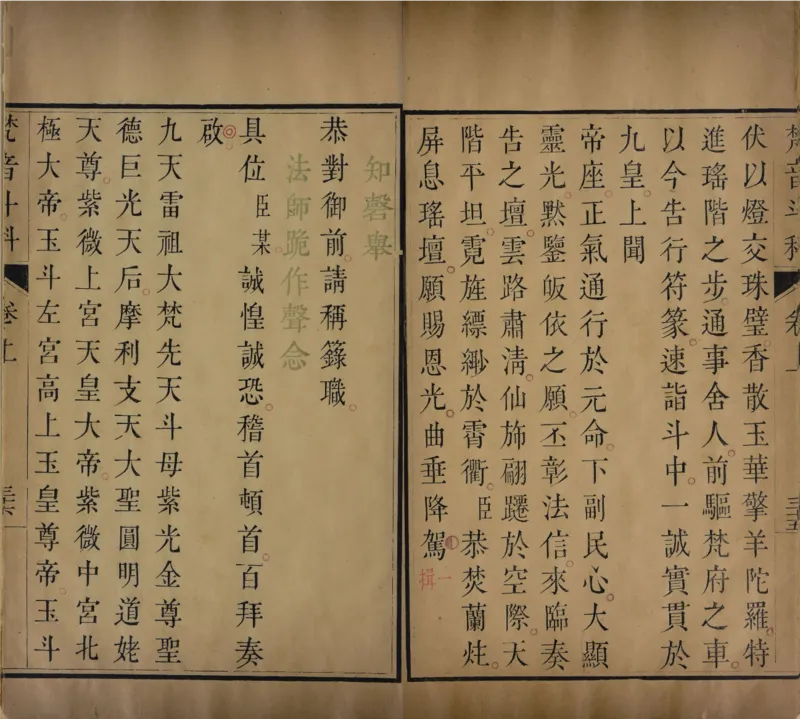 伏以燈交珠璧。香散玉華擎羊陀羅。特
進瑤階之步。通事舍人。前驅梵府之車。
以今告行符篆。速詣斗中。一誠實貫於
九皇。上聞
帝座。正氣通行於元命。下副民心。大顯
靈光。默鑒皈依之願。丕彰法信。來臨奏
告之壇。雲路肅清。仙斾翩躚於空際。天
階平坦。霓旌縹緲於霄衢。臣恭焚蘭炷。
屏息瑤壇。願賜恩光。曲垂降駕
一揖
知磬舉
恭對御前。請稱籙職。
法師跪作聲念
具位臣某。誠惶誠恐。稽首頓首。百拜奏
啟
九天雷祖大梵先天斗母紫光金尊聖
德巨光天后。摩利支天大聖圓明道姥
天尊。紫微上宮天皇大帝。紫微中宮北
極大帝。玉斗左宮高上玉皇尊帝。玉斗
梵音斗科
卷上
三十五
梵音斗科
卷上
三十六